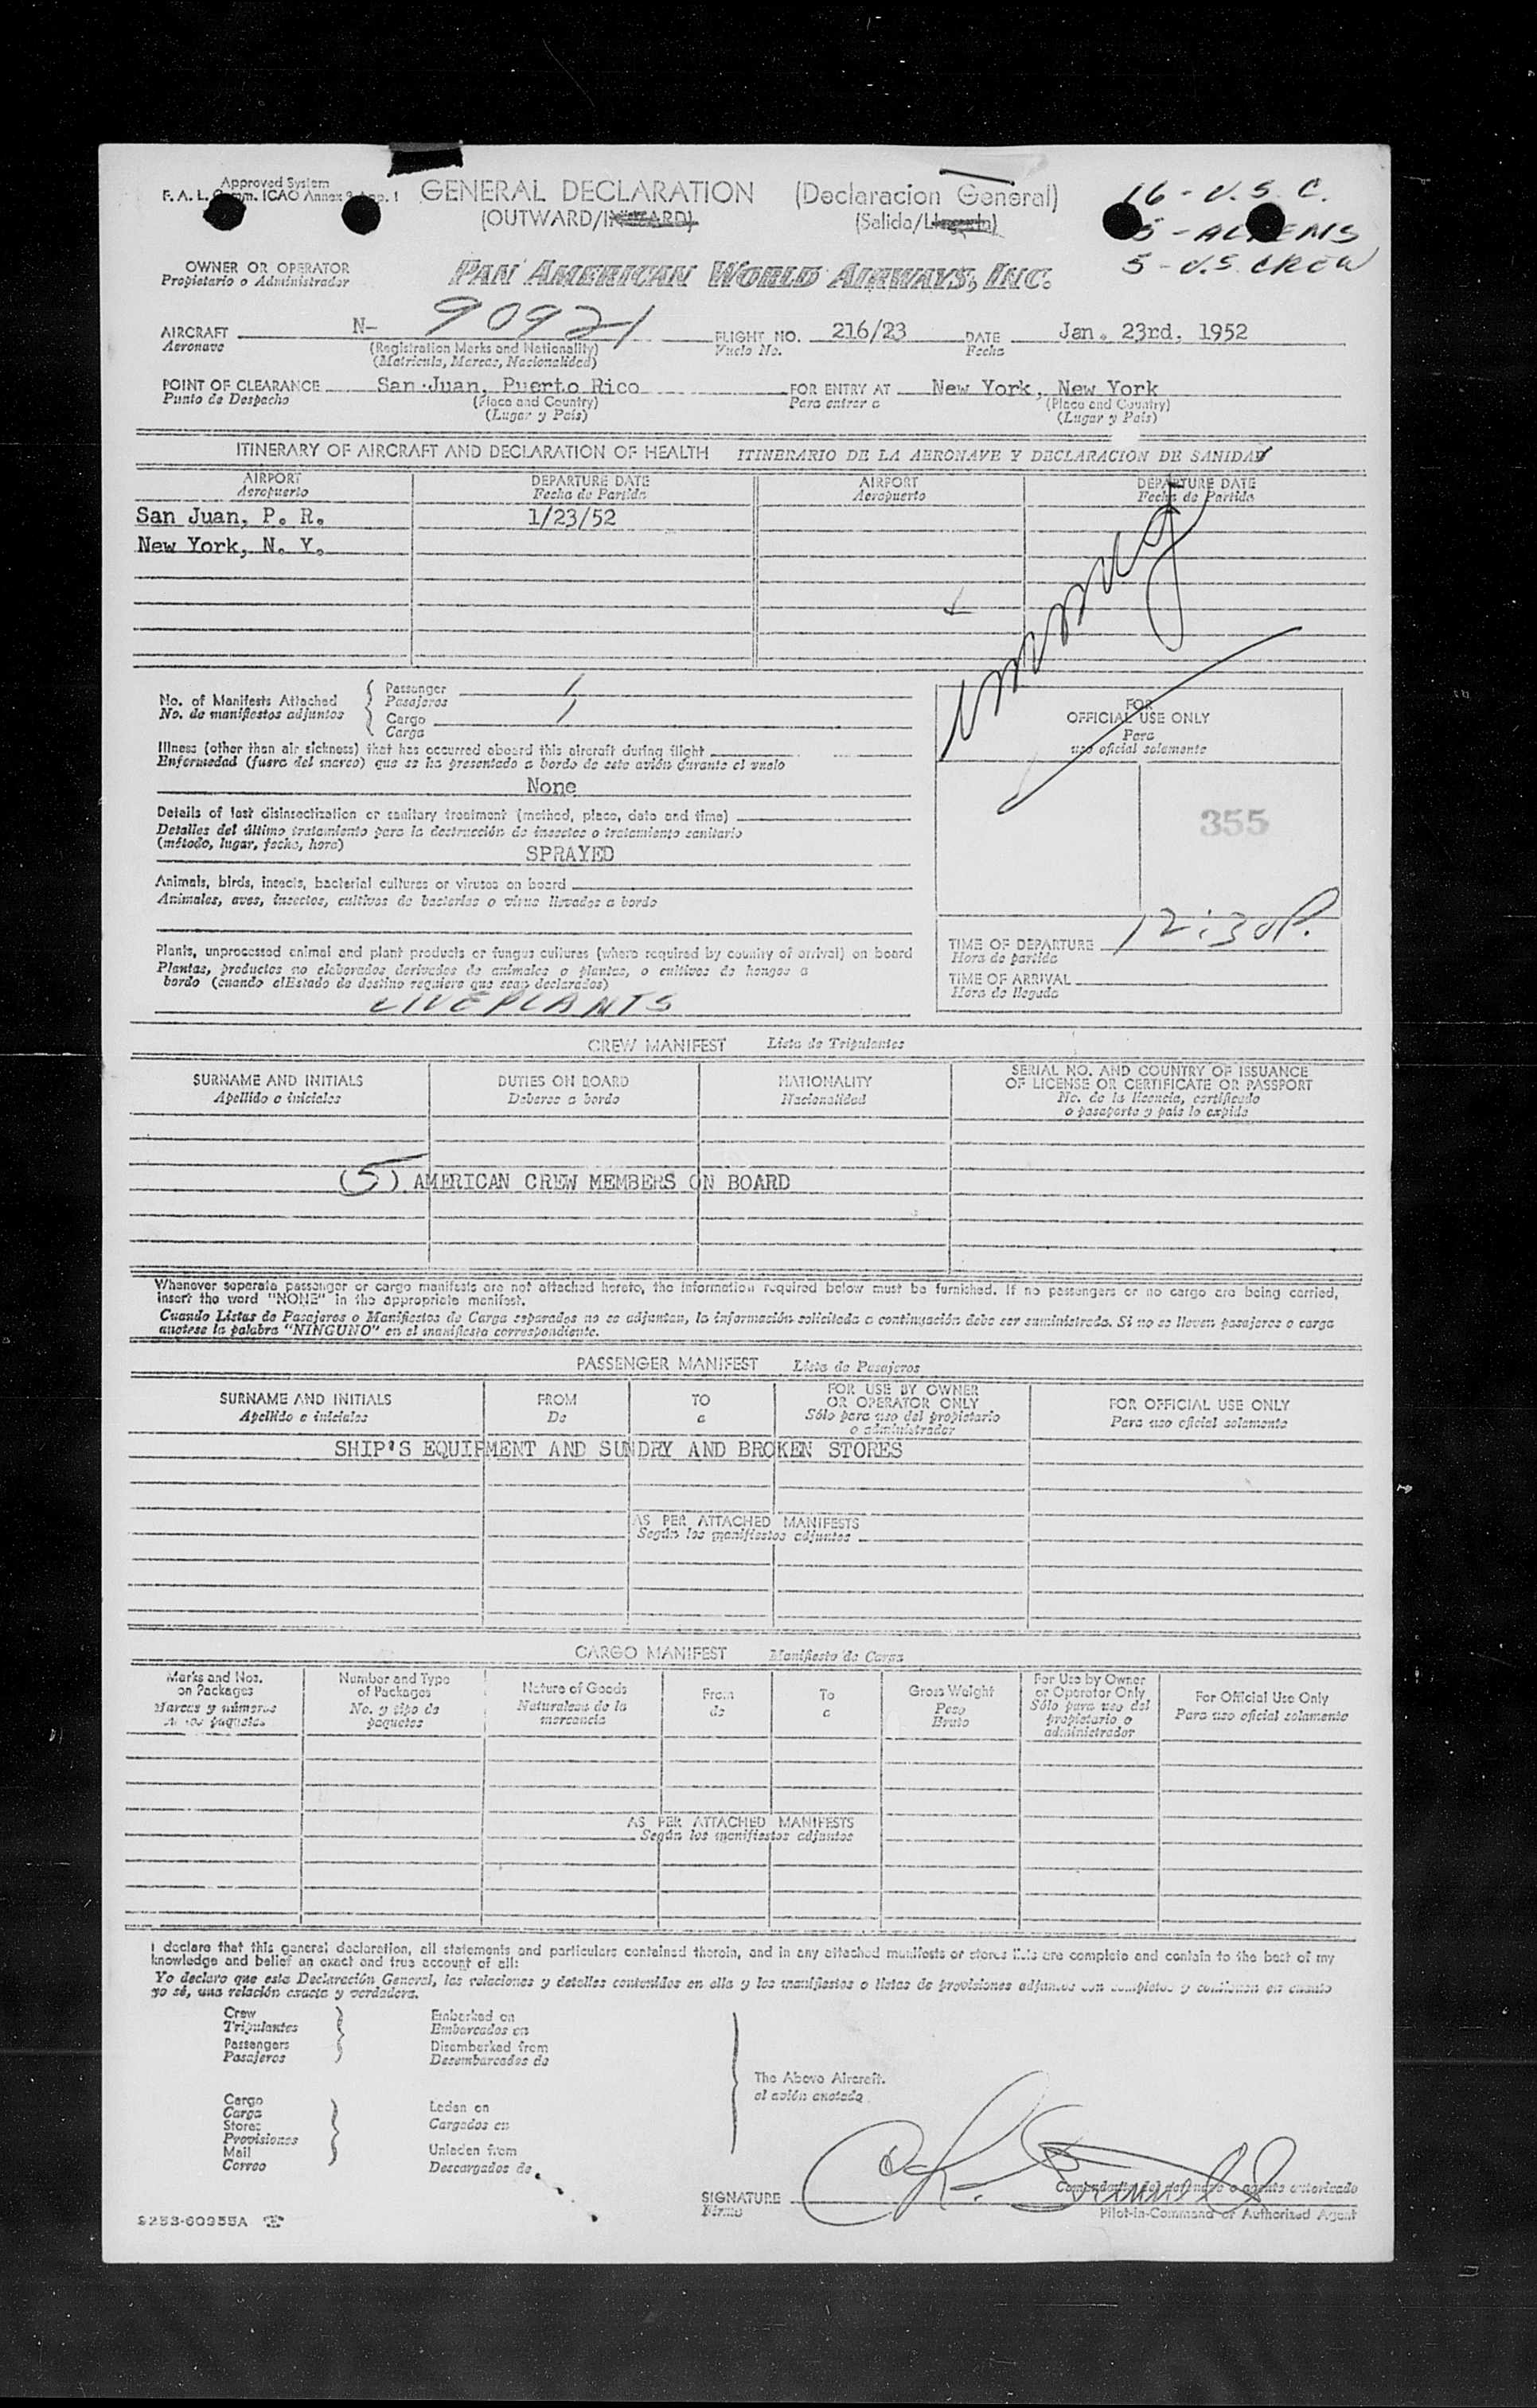 Approved System
F. A. L. Comm. ICAO Annex 9 App. 1
GENERAL DECLARATION (Declaracion General)
(OUTWARD/INWARD) (Salida/Llegada)
16 - U. S. C.
5 - ALIENS
5 - U.S. CREW
OWNER OR OPERATOR
Propietario o Administrador
PAN AMERICAN WORLD AIRWAYS, INC.
AIRCRAFT N- 90921 FLIGHT NO. 216/23 DATE Jan. 23rd. 1952
Aeronave (Registration Marks and Nationality) Vuelo No. Fecha
(Matricula, Marcas, Nacionalidad)
POINT OF CLEARANCE San Juan, Puerto Rico FOR ENTRY AT New York, New York
Punto de Despacho (Place and Country) Para entrar a (Place and Country)
(Lugar y País) (Lugar y País)
ITINERARY OF AIRCRAFT AND DECLARATION OF HEALTH ITINERARIO DE LA AERONAVE Y DECLARACION DE SANIDAD
AIRPORT DEPARTURE DATE AIRPORT DEPARTURE DATE
Aeropuerto Fecha de Partida Aeropuerto Fecha de Partida
San Juan, P. R. 1/23/52
New York, N. Y.
immig
No. of Manifests Attached
No. de manifiestos adjuntos
Passenger 1
Pasajeros
Cargo 1
Carga
Illness (other than air sickness) that has occurred aboard this aircraft during flight
Enfermedad (fuera del mareo) que se ha presentado a bordo de este avión durante el vuelo
None
Details of last disinsectization or sanitary treatment (method, place, date and time)
Detalles del último tratamiento para la destrucción de insectos o tratamiento sanitario
(método, lugar, fecha, hora)
SPRAYED
Animals, birds, insects, bacterial cultures or viruses on board
Animales, aves, insectos, cultivos de bacterias o virus llevados a bordo
Plants, unprocessed animal and plant products or fungus cultures (where required by country of arrival) on board
Plantas, productos no elaborados derivados de animales o plantas, o cultivos de hongos a
bordo (cuando elEstado de destino requiere que sean declarados)
LIVE PLANTS
FOR
OFFICIAL USE ONLY
Para
uso oficial solamente
355
TIME OF DEPARTURE 12:30P.
Hora de partida
TIME OF ARRIVAL
Hora de llegada
CREW MANIFEST Lista de Tripulantes
SURNAME AND INITIALS DUTIES ON BOARD NATIONALITY SERIAL NO. AND COUNTRY OF ISSUANCE
OF LICENSE OR CERTIFICATE OR PASSPORT
Apellido e iniciales Deberes a bordo Nacionalidad No. de la licencia, certificado
o pasaporte y país lo expide
(5) AMERICAN CREW MEMBERS ON BOARD
Whenever separate passenger or cargo manifests are not attached hereto, the information required below must be furnished. If no passengers or no cargo are being carried,
insert the word "NONE" in the appropriate manifest.
Cuando Listas de Pasajeros o Manifiestos de Carga separados no se adjuntan, la información solicitada a continuación debe ser suministrada. Si no se llevan pasajeros o carga
anotese la palabra "NINGUNO" en el manifiesto correspondiente.
PASSENGER MANIFEST Lista de Pasajeros
SURNAME AND INITIALS FROM TO FOR USE BY OWNER
OR OPERATOR ONLY FOR OFFICIAL USE ONLY
Apellido e iniciales De a Sólo para uso del propietario
o administrador Para uso oficial solamente
SHIP'S EQUIPMENT AND SUNDRY AND BROKEN STORES
AS PER ATTACHED MANIFESTS
Según los manifiestos adjuntos
CARGO MANIFEST Manifiesto de Carga
Marks and Nos.
on Packages
Marcas y números
Number and Type
of Packages
No. y tipo de
paquetes
Nature of Goods
Naturaleza de la
mercancia
From
de
To
a
Gross Weight
Peso
Bruto
For Use by Owner
or Operator Only
Sólo para uso del
propietario o
administrador
For Official Use Only
Para uso oficial solamente
AS PER ATTACHED MANIFESTS
Según los manifiestos adjuntos
I declare that this general declaration, all statements and particulars contained therein, and in any attached manifests or stores lists are complete and contain to the best of my
knowledge and belief an exact and true account of all:
Yo declaro que esta Declaración General, las relaciones y detalles contenidos en ella y los manifiestos o listas de provisiones adjuntos son completos y contienen en cuanto
yo sé, una relación exacta y verdadera.
Crew
Tripulantes
Passengers
Pasajeros
Embarked on
Embarcados en
Disembarked from
Desembarcados de
The Above Aircraft.
el avión anotado
Cargo
Carga
Stores
Provisiones
Mail
Correo
Laden on
Cargados en
Unladen from
Descargados de
SIGNATURE
Firma
autorizado
Pilot-in-Command or Authorized Agent
9253-60355A